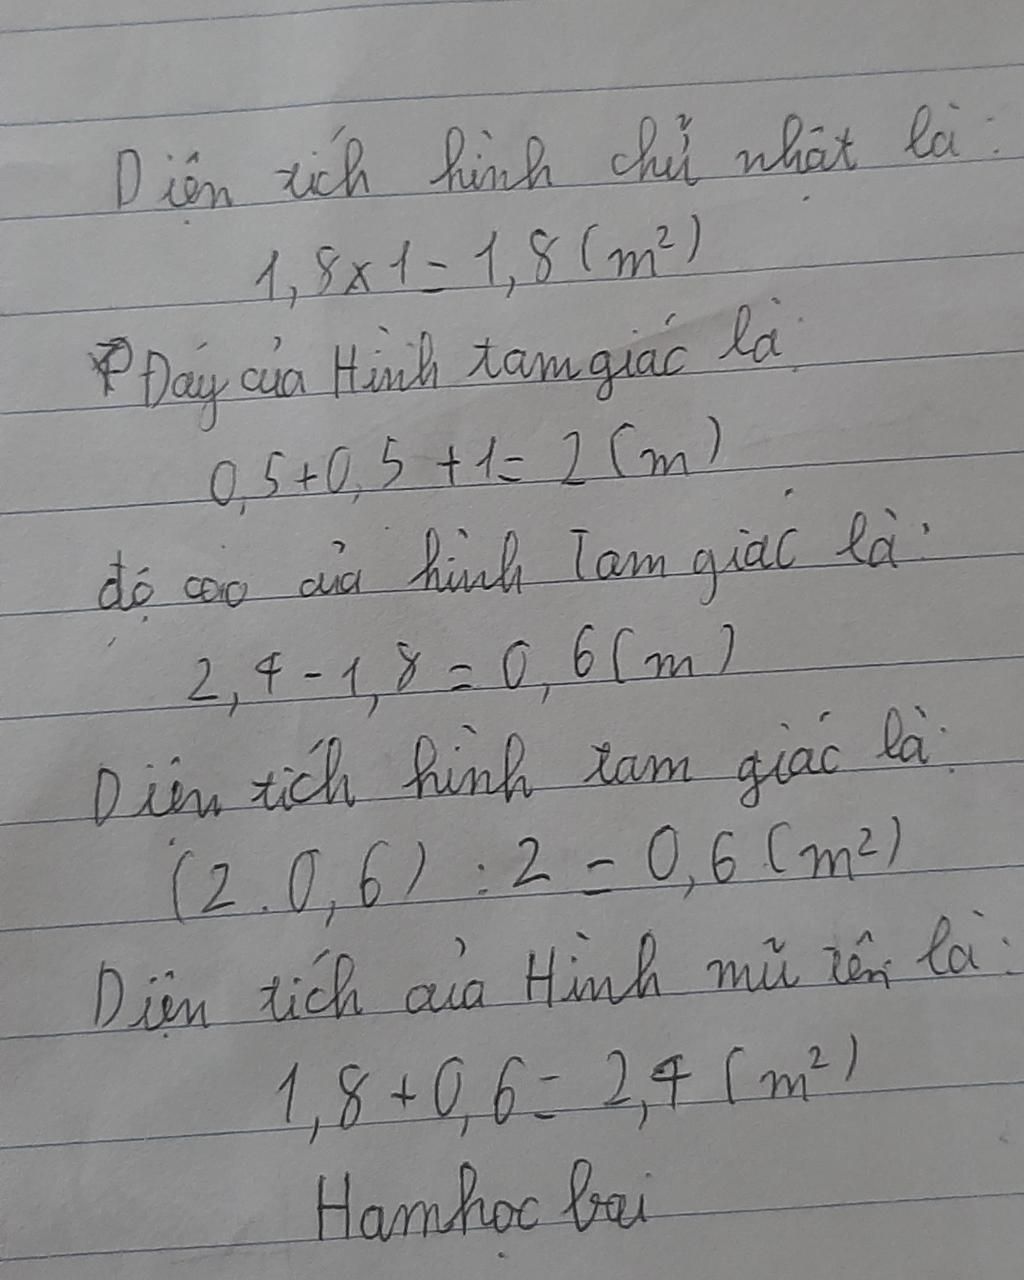 Diện tích hình chử nhật là:
1,8 x 1 = 1,8 (m²)
Đáy của Hình tam giác là:
0,5 + 0,5 + 1 = 2 (m)
độ cao của hình Tam giác là:
2,4 - 1,8 = 0,6 (m)
Diện tích hình tam giác là:
(2.0,6) : 2 = 0,6 (m²)
Diện tích của Hình mũ tên là:
1,8 + 0,6 = 2,4 (m²)
Hamhọc bai